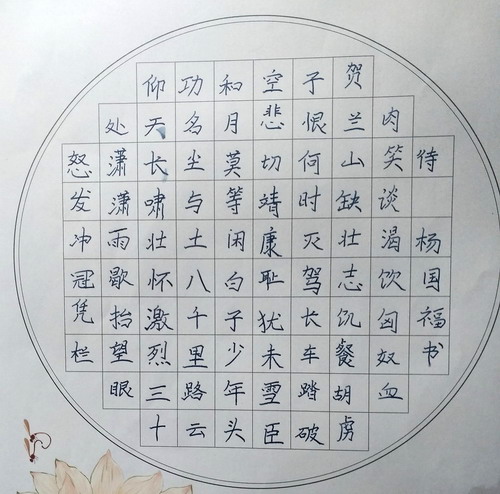 怒发冲冠凭栏
处潇潇雨歇抬望眼
仰天长啸壮怀激烈三十
功名尘与土八千里路云
和月莫等闲白子少年头
空悲切靖康耻犹未雪臣
子恨何时灭驾长车踏破
贺兰山缺壮志饥餐胡虏
肉笑谈渴饮匈奴血
待 杨国福书